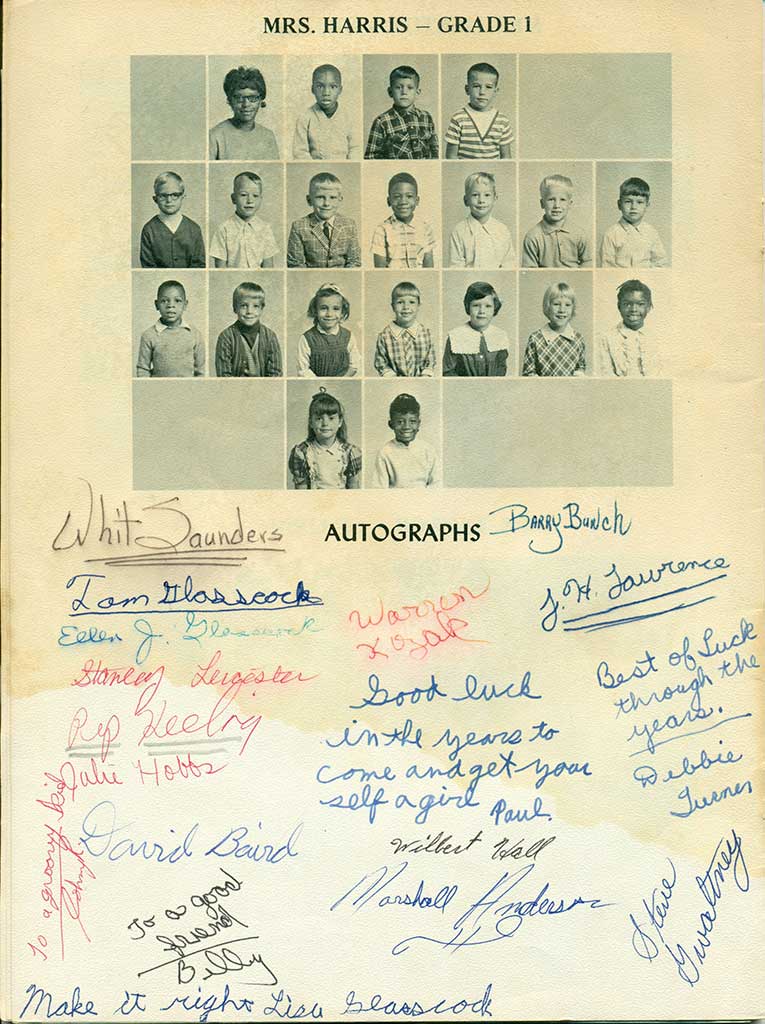 MRS. HARRIS – GRADE 1
Whit Saunders
AUTOGRAPHS
Barry Bunch
Tom Glasscock
J. H. Lawrence
Ellen J. Glasscock
Warren
Kozak
Stanley Leicester
Best of Luck
through the
years.
Debbie
Turner
Rip Keelny
Good luck
in the years to
come and get your
self a girl
Paul.
Julie Hobbs
David Baird
Wilbert Hall
Marshall Anderson
Steve
Gwaltney
To a groovy kid
Johnny
To a good
friend
Billy
Make it right Lisa Glasscock